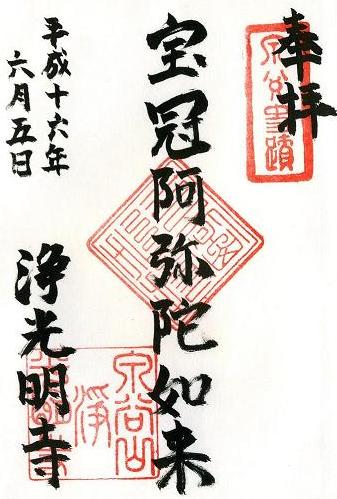 奉拝
宝冠阿弥陀如来
平成十六年
六月五日
浄光明寺
泉谷山
浄